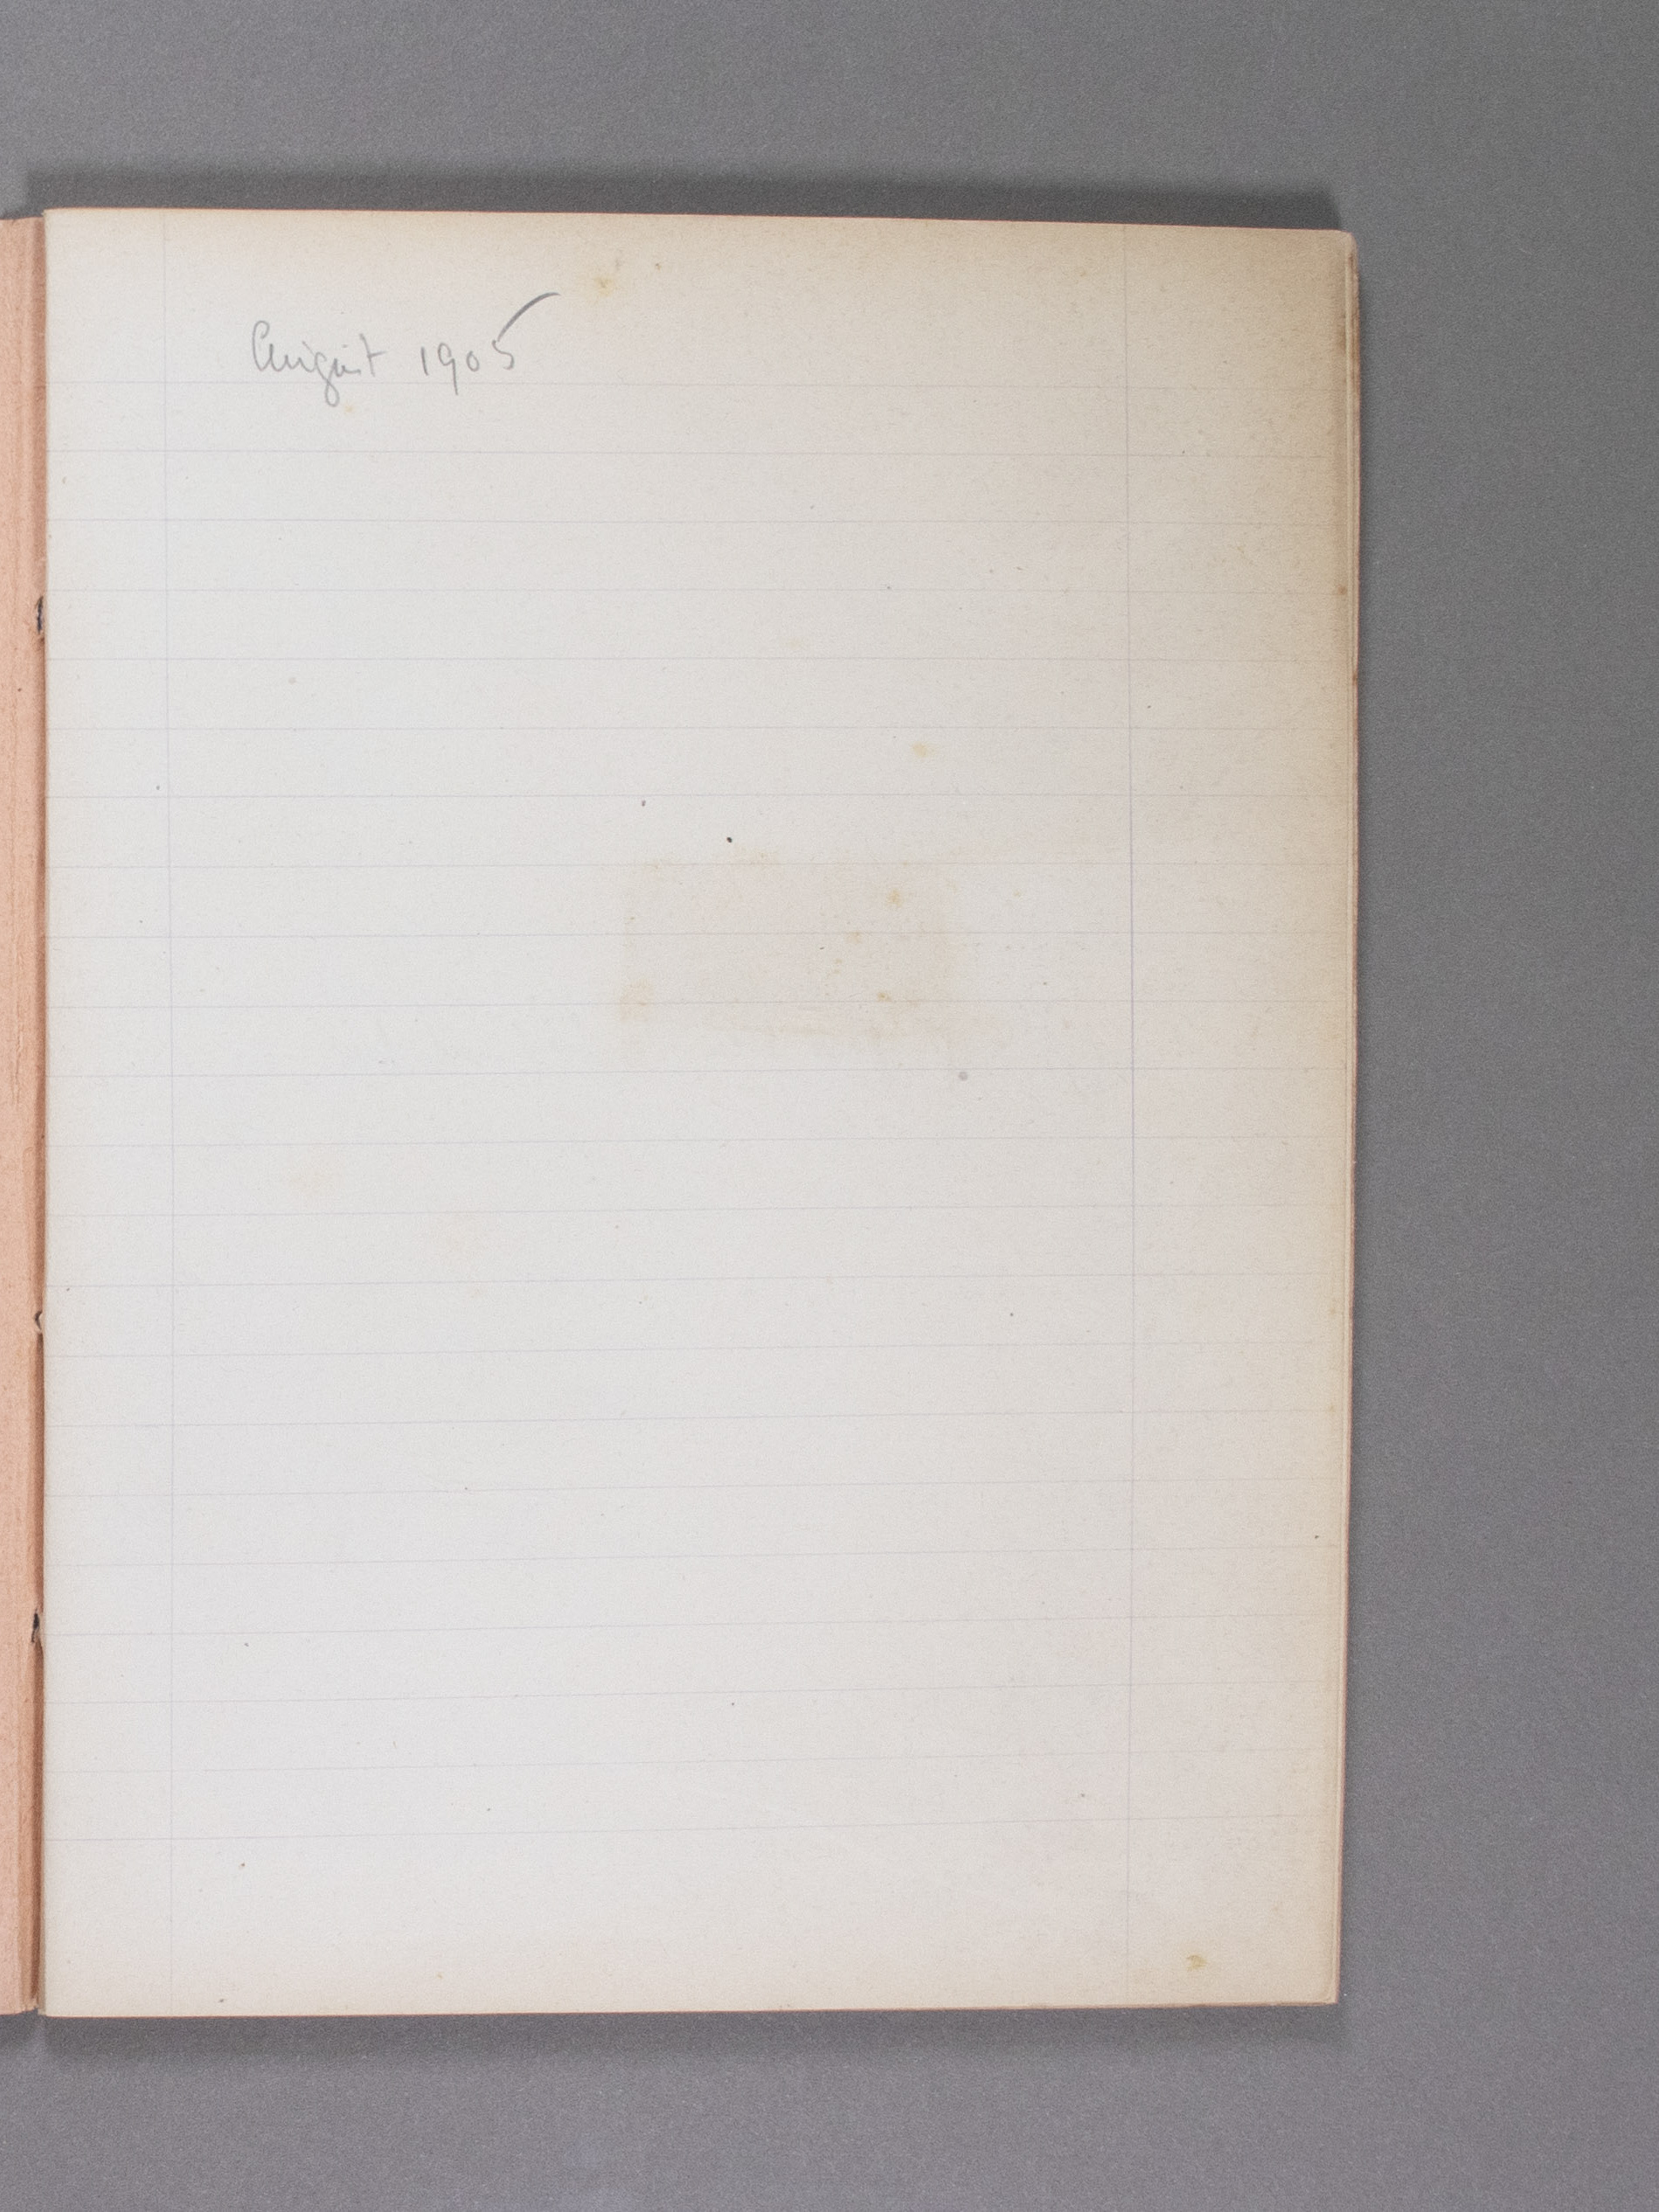 August 1905